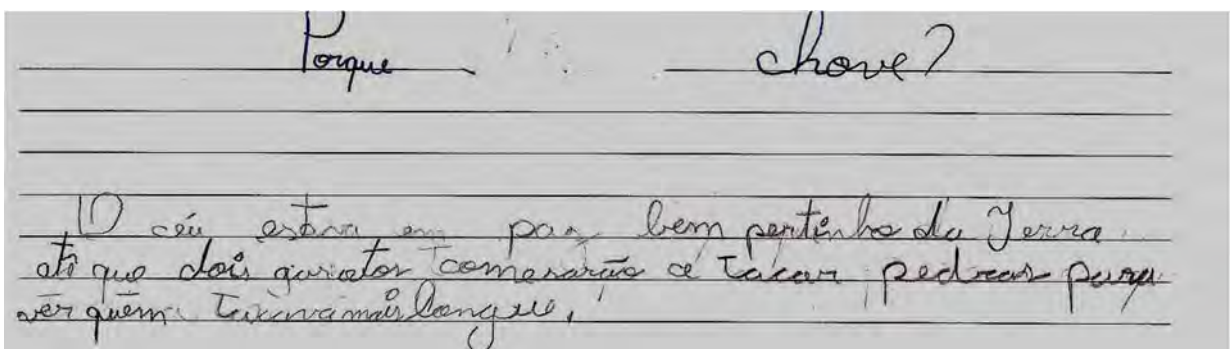 Porque chove?
O céu estava em paz bem pertinho da Terra
até que dois garotos comesarão a tacar pedras para
ver quem tacava mais longue,